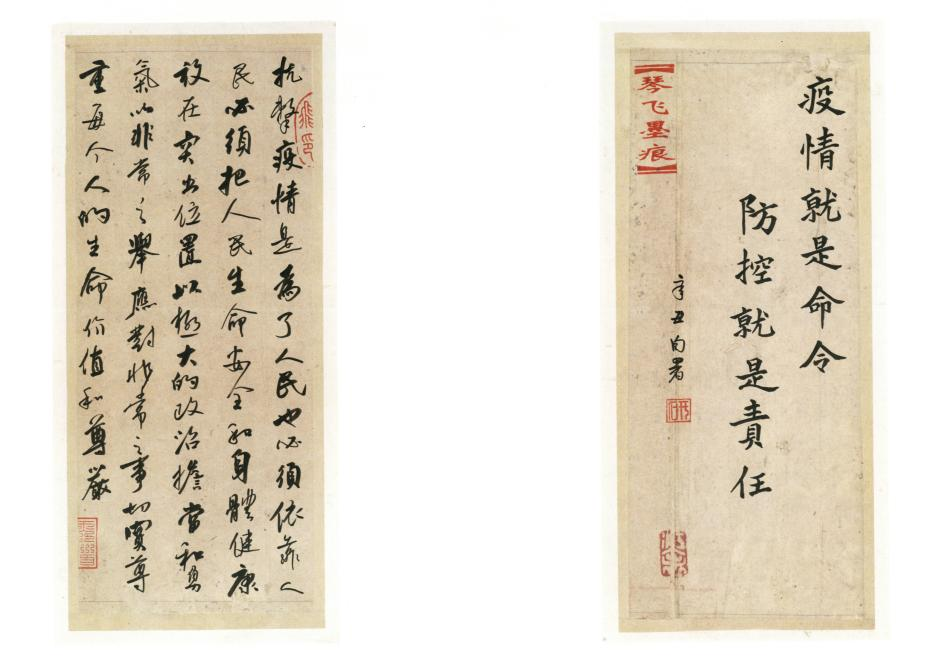 疫情就是命令
防控就是責任
辛丑
【琴飞墨痕】
抗擊疫情是為了人民也必須依靠人
民必須把人民生命安全和身體健康
放在突出位置以極大的政治擔當和勇
氣以非常之舉應對非常之事切實尊
重每个人的生命价值和尊嚴